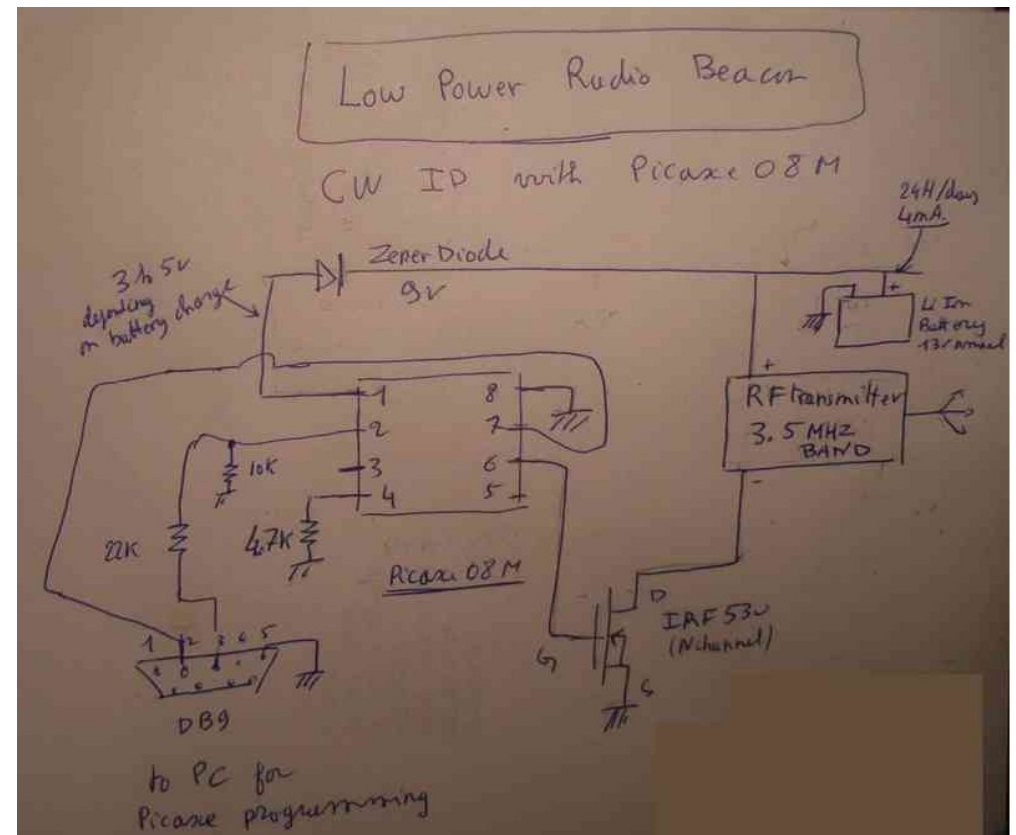 Low Power Radio Beacon
CW ID with Picaxe 08M
24H/day
4mA.
Zener Diode
9v
3 to 5v
depending
on battery charge
+
Li Ion
Battery
13v
+
RF transmitter
3.5 MHZ
BAND
-
1
2
3
4
8
7
6
5
10K
22K
4.7K
Picaxe 08M
D
G
S
IRF530
(N channel)
1 2 3 4 5
DB9
to PC for
Picaxe programming